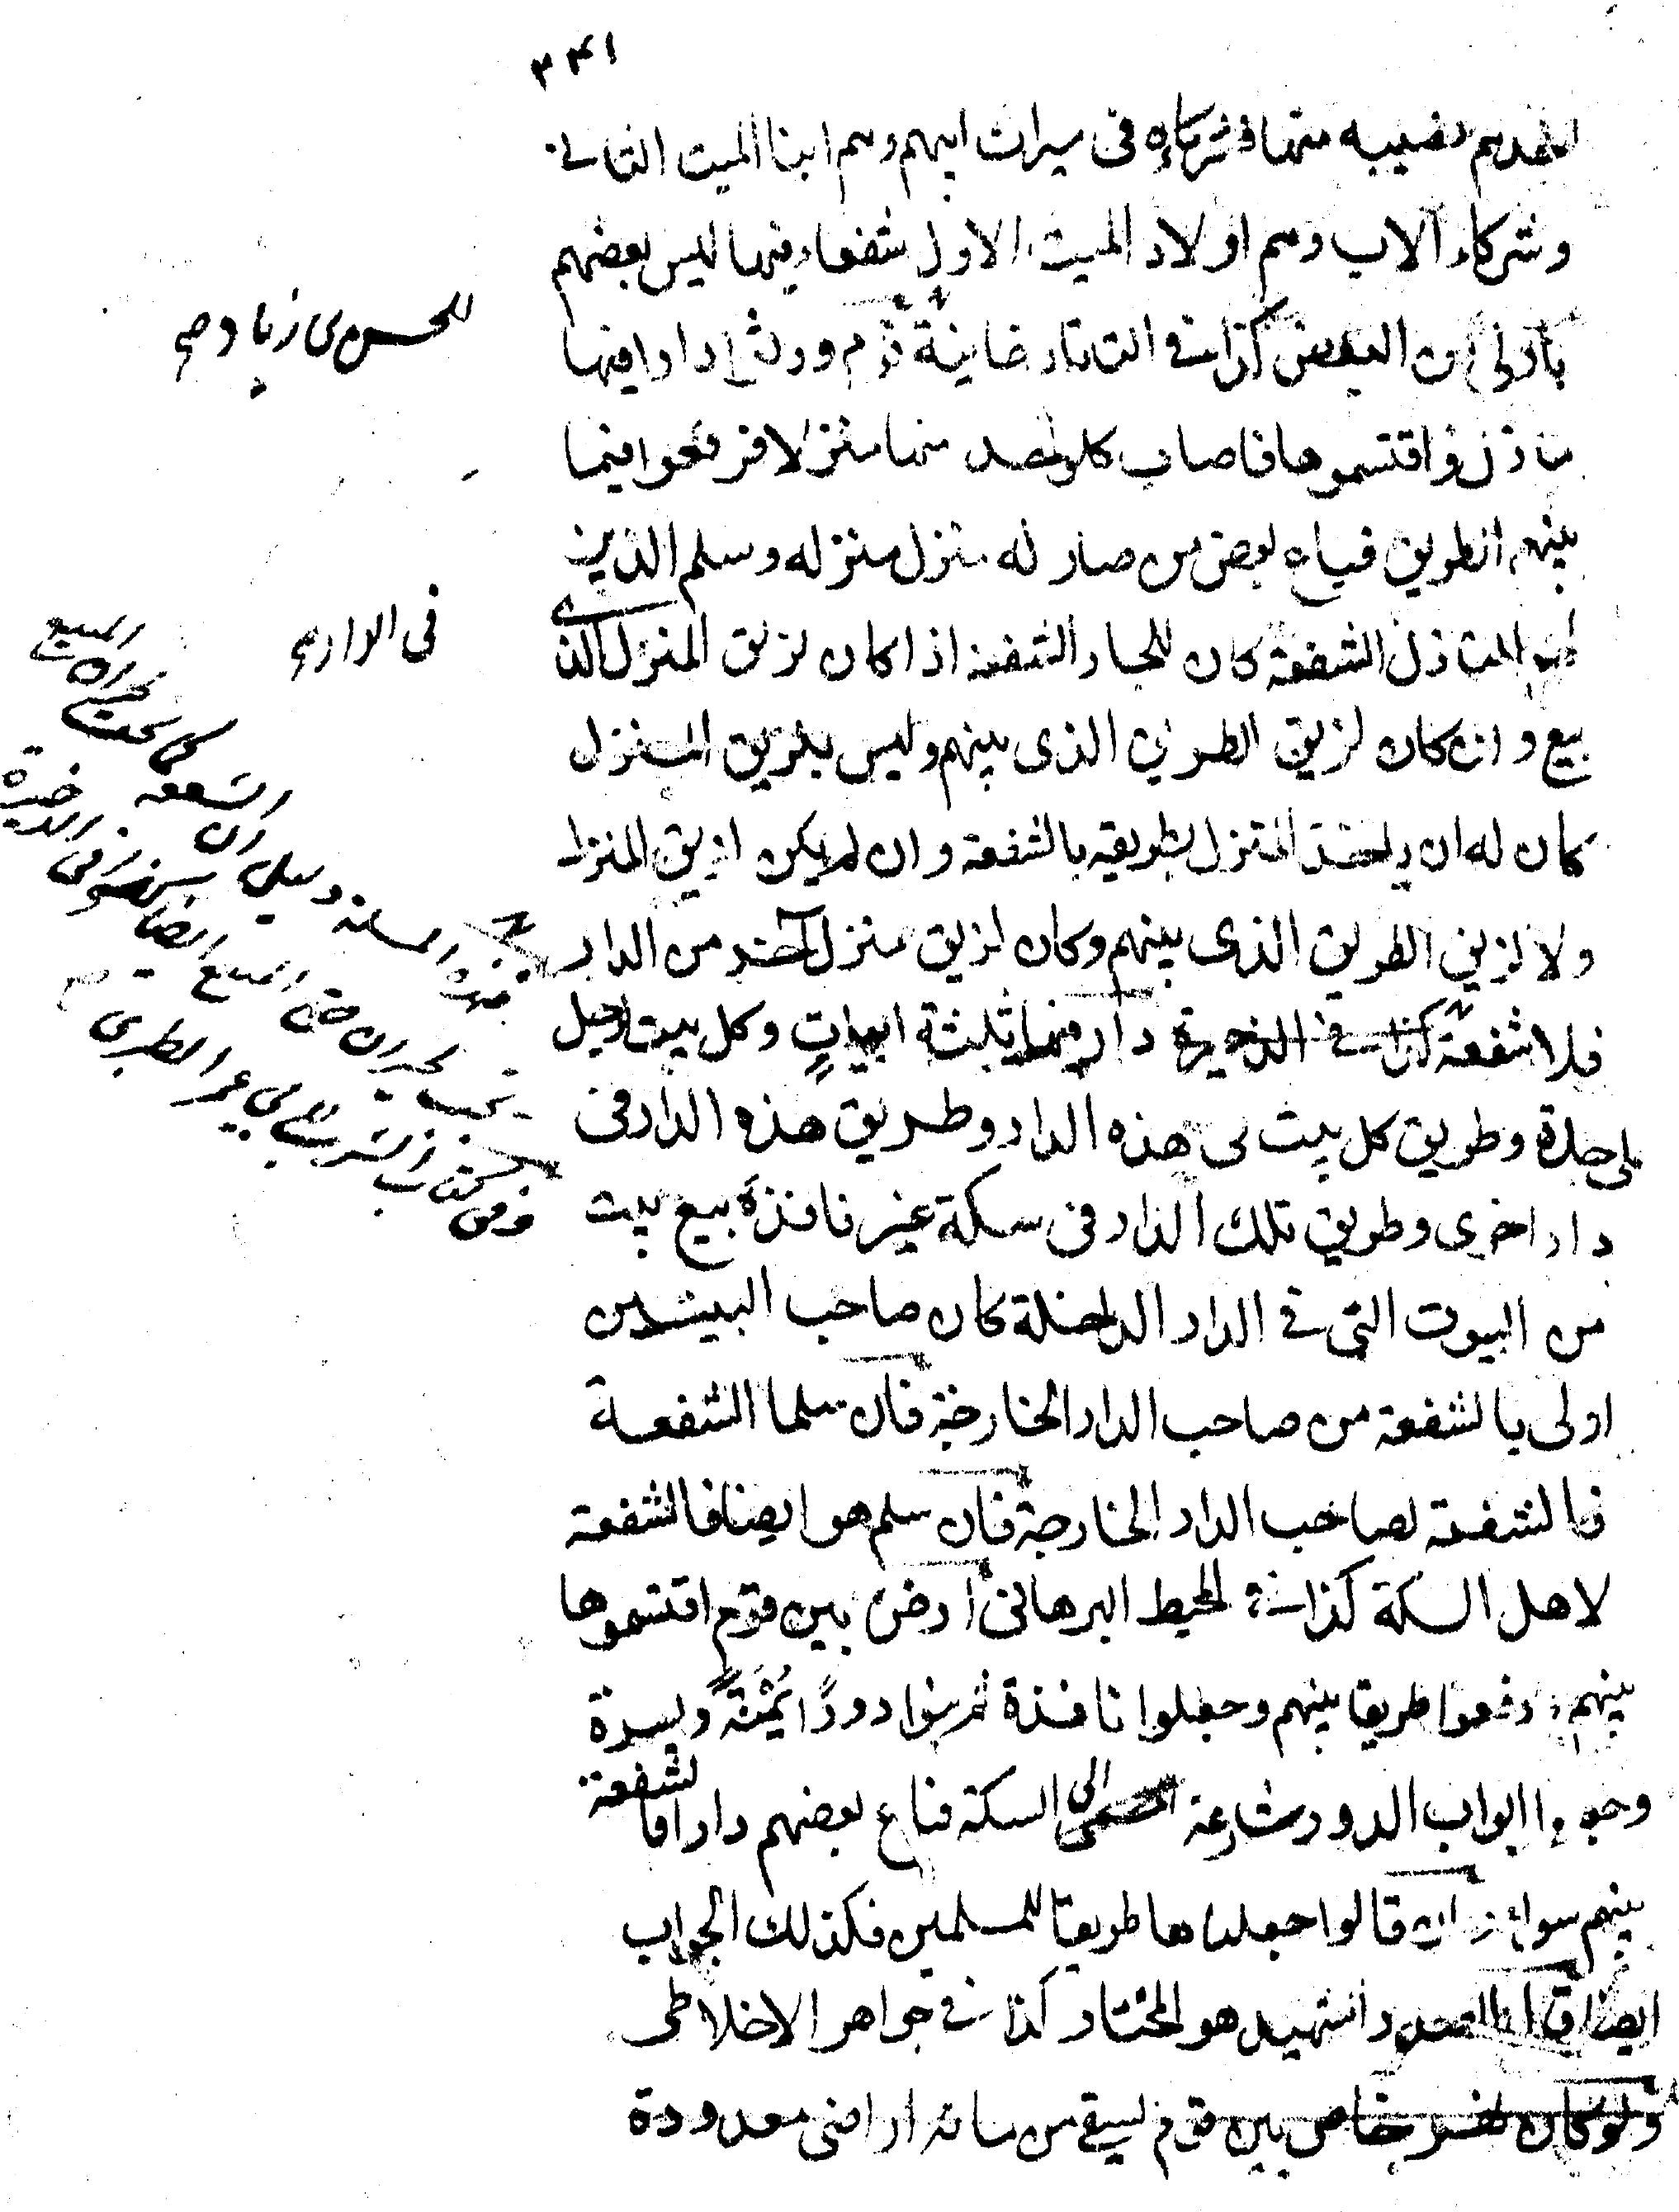 ٣٤١
نصيبه منها فشركاؤه فى ميراث ابيهم وهم ابنا الميت الثانى
وشركاء الاب وهم اولاد الميت الاول شفعاء فيها ليس بعضهم
باولى من البعض كذا فى التاتارخانية قوم ورثوا دارا فيها
منازل واقتسموها فاصاب كل واحد منها منزلا فرفعوا فيما
بينهم الطريق فباع بعض من صار له منزل منزله وسلم الذين
لهم المنازل الشفعة كان للجار الشفعة اذا كان لزيق المنزل الذى
بيع وان كان لزيق الطريق الذى بينهم وليس بلزيق المنزل
كان له ان ياخذ المنزل بطريقه بالشفعة وان لم يكن لزيق المنزل
ولا لزيق الطريق الذى بينهم وكان لزيق منزل آخر من الدار
فلا شفعة كذا فى الذخيرة دار فيها ثلثة ابيات وكل بيت لرجل
على حدة وطريق كل بيت فى هذه الدار وطريق هذه الدار فى
دار اخرى وطريق تلك الدار فى سكة غير نافذة بيع بيت
من البيوت التى فى الدار الداخلة كان صاحب البيتين
اولى بالشفعة من صاحب الدار الخارجة فان سلما الشفعة
فالشفعة لصاحب الدار الخارجة فان سلم هو ايضا فالشفعة
لاهل السكة كذا فى المحيط البرهانى ارض بين قوم اقتسموها
بينهم ورفعوا طريقا بينهم وجعلوا نافذة ثم بنوا دورًا يَمْنَةً ويسرة
وجعلوا ابواب الدور شارعة الى السكة فباع بعضهم دارا فالشفعة
بينهم سواء وان قالوا جعلناها طريقا للمسلمين فكذلك الجواب
ايضا قال الصدر الشهيد هو المختار كذا فى جواهر الاخلاطى
ولو كان نهر خاص بين قوم يسقى من مائه اراضى معدودة
للحسن بن زياد
فى
المبيع
الشفعة
هذه المسئلة دليل ان
الذخيرة